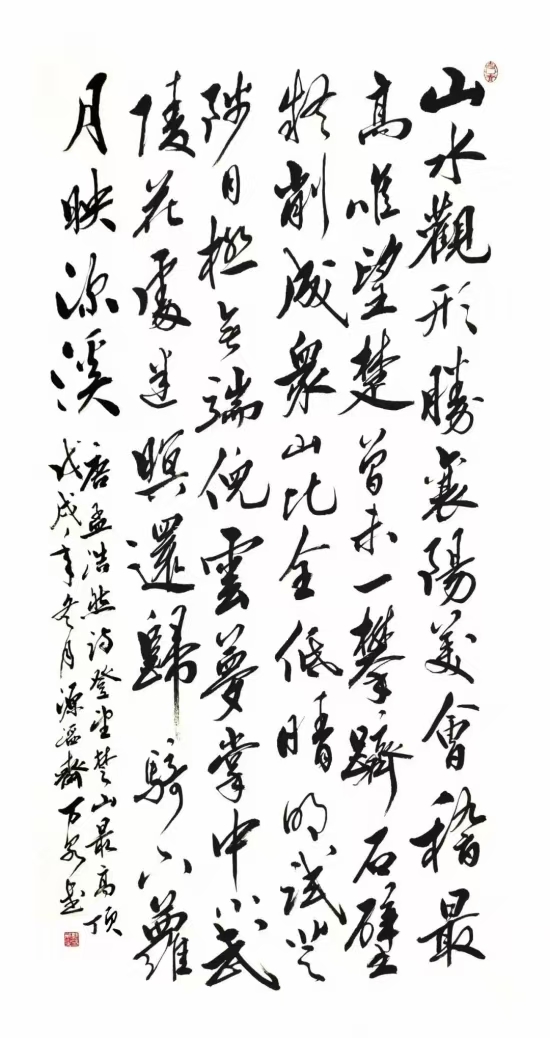 山水觀形勝襄陽美會稽最
高唯望楚曾未一攀躋石壁
疑削成衆山比全低晴明試登
陟目極無端倪雲夢掌中小武
陵花處迷暝還歸騎下蘿
月映深溪
唐孟浩然詩登望楚山最高頂
戊戌年冬月源齋万泉書